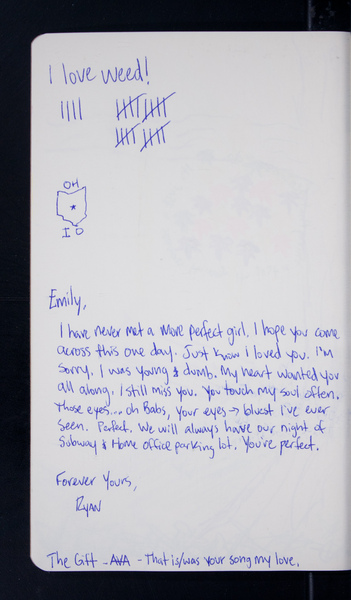 I love weed!
OH
IO
Emily,
I have never met a more perfect girl. I hope you come
across this one day. Just know I loved you. I'm
sorry. I was young & dumb. My heart wanted you
all along. I still miss you. You touch my soul often.
Those eyes... oh Babs, your eyes → bluest I've ever
seen. Perfect. We will always have our night of
Subway & Home office parking lot. You're perfect.
Forever Yours,
Ryan
The Gift - AVA - That is/was your song my love.